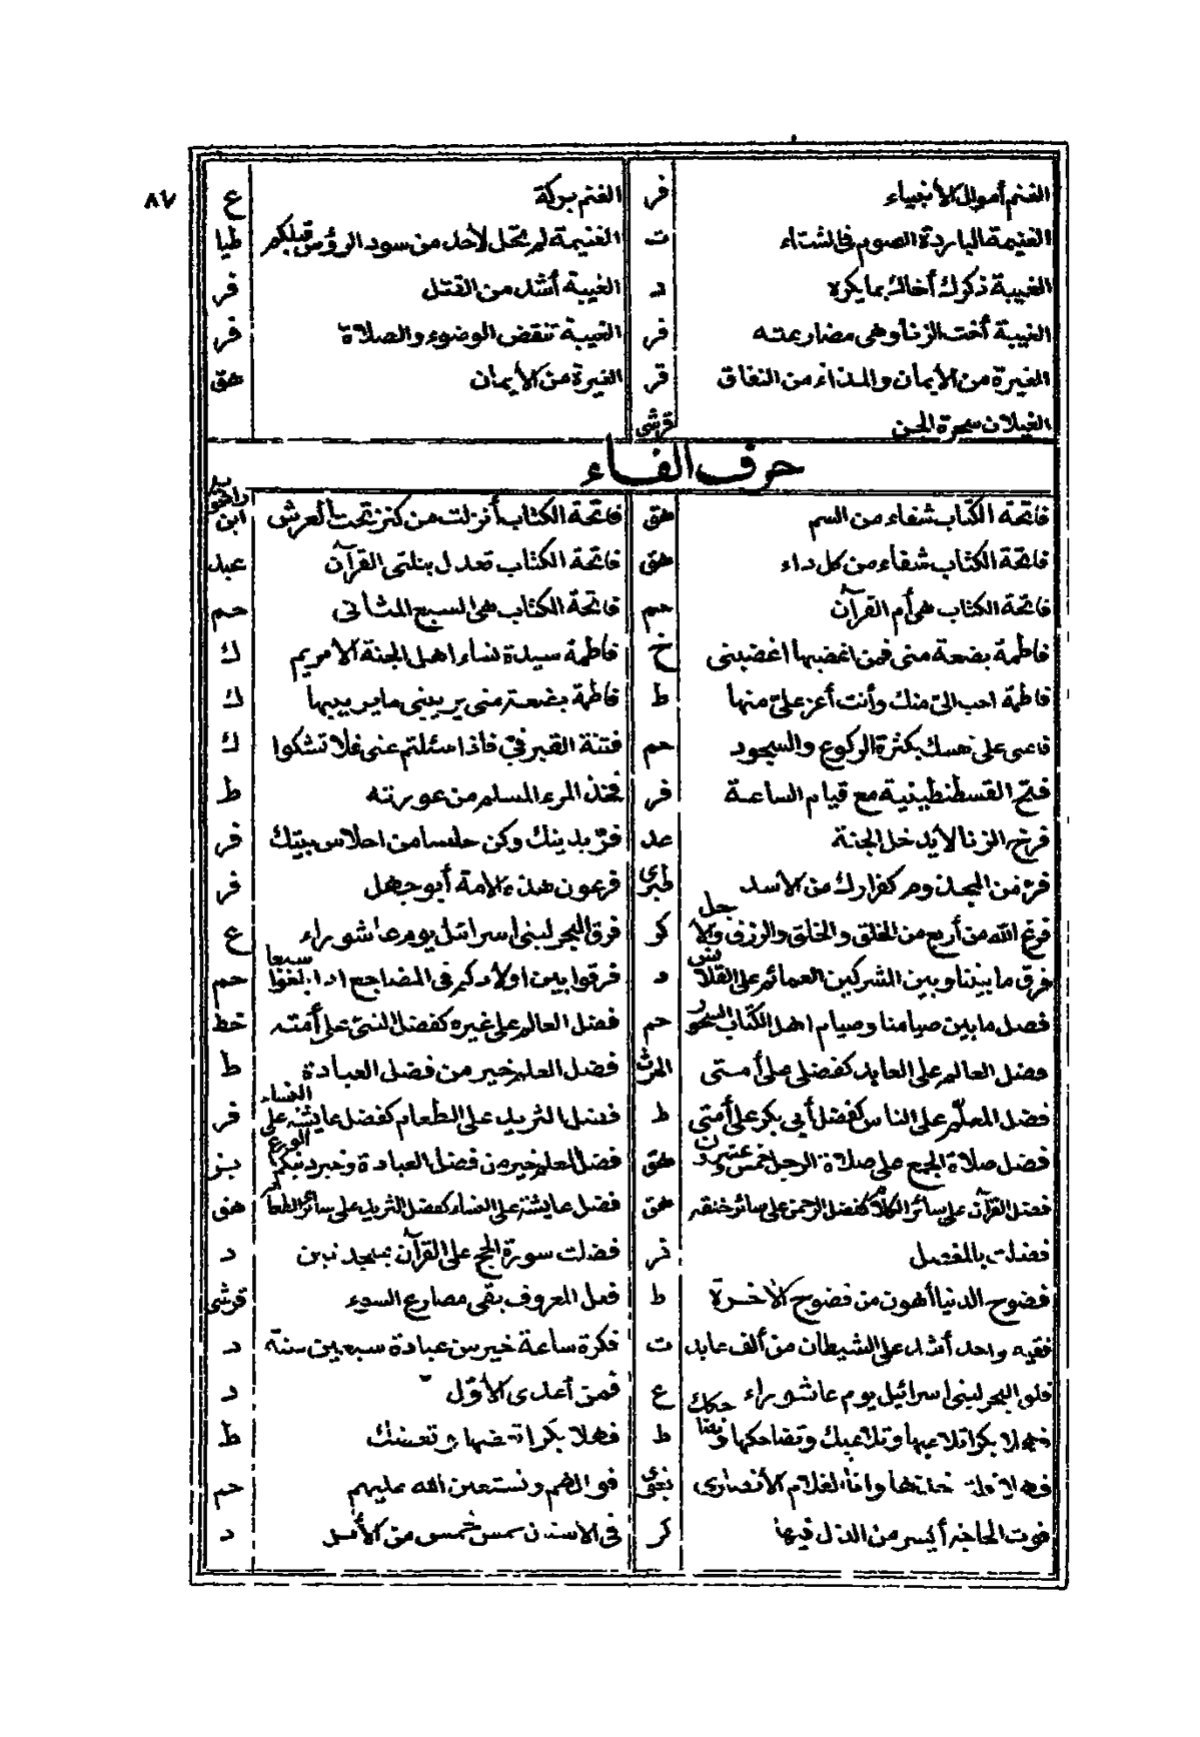 ٨٧
الغنم أموال الأنبياء فر الغنم بركة ع
الغنيمة الباردة الصوم في الشتاء ت الغنيمة لم تحل لأحد من سود الرؤس قبلكم طيا
الغيبة ذكرك أخاك بما يكره د الغيبة أشد من القتل فر
الغيبة أخت الزنا وهى فر الغيبة تنقض الوضوء والصلاة فر
الغيرة من الأيمان والمذاء من النفاق فر الغيرة من الأيمان هق
الغيلان سحرة الجن قرشى
حرف الفاء
فاتحة الكتاب شفاء من السم هق فاتحة الكتاب أنزلت من كنز تحت العرش ابن راهويه
فاتحة الكتاب شفاء من كل داء هق فاتحة الكتاب تعدل بثلثى القرآن عبد
فاتحة الكتاب هى أم القرآن حم فاتحة الكتاب هى السبع المثانى حم
فاطمة بضعة منى فمن اغضبها اغضبنى خ فاطمة سيدة نساء اهل الجنة الا مريم ك
فاطمة احب الىّ منك وأنت أعز علىّ منها ط فاطمة بضعة منى يريبنى ما يريبها ك
فاعنى على نفسك بكثرة الركوع والسجود حم فتنة القبر فىّ فاذا سئلتم عنى فلا تشكوا ك
فتح القسطنطينية مع قيام الساعة فر فخذ المرء المسلم من عورته ط
فرخ الزنا لا يدخل الجنة عد فرّ بدينك وكن حلسا من احلاس بيتك فر
فرّ من المجذوم كفرارك من الاسد طبرى فرعون هذه الامة أبو جهل فر
فرغ الله من أربع من الخلق والخلق والرزق والاجل كر فرق البحر لبنى اسرائيل يوم عاشوراء ع
فرق ما بيننا وبين المشركين العمائم على القلانس د فرقوا بين اولادكم فى المضاجع اذا بلغوا سبعا حم
فصل ما بين صيامنا وصيام اهل الكتاب السحور حم فضل العالم على غيره كفضل النبىّ على أمته خط
فضل العالم على العابد كفضلى على أمتى الحرث فضل العلم خير من فضل العبادة ط
فضل المعلّم على الناس كفضل أبى بكر على أمتى ط فضل الثريد على الطعام كفضل عايشة على النساء فر
فضل صلاة الجمع على صلاة الرجل خمس وعشرون هق فضل العلم خير من فضل العبادة وخير دينكم الورع بز
فضل القرآن على سائر الكلام كفضل الرحمن على سائر خلقه هق فضل عايشة على النساء كفضل الثريد على سائر الطعام هق
فضلت بالمفصل فر فضلت سورة الحج على القرآن بسجدتين د
فضوح الدنيا أهون من فضوح الآخرة ط فعل المعروف يقى مصارع السوء قرشى
فقيه واحد أشد على الشيطان من ألف عابد ت فكرة ساعة خير من عبادة سبعين سنة د
فلق البحر لبنى اسرائيل يوم عاشوراء ع فمن أعدى الأوّل د
فهلا بكرا تلاعبها وتلاعبك وتضاحكها وتضاحكك ط فهلا بكرا تعضها وتعضك ط
وانا الغلام الأنصارى فوا لهم ونستعين الله عليهم حم
فوت الحاجة أيسر من الذل فيها كر فى الاسنان خمس خمس من الأبل د